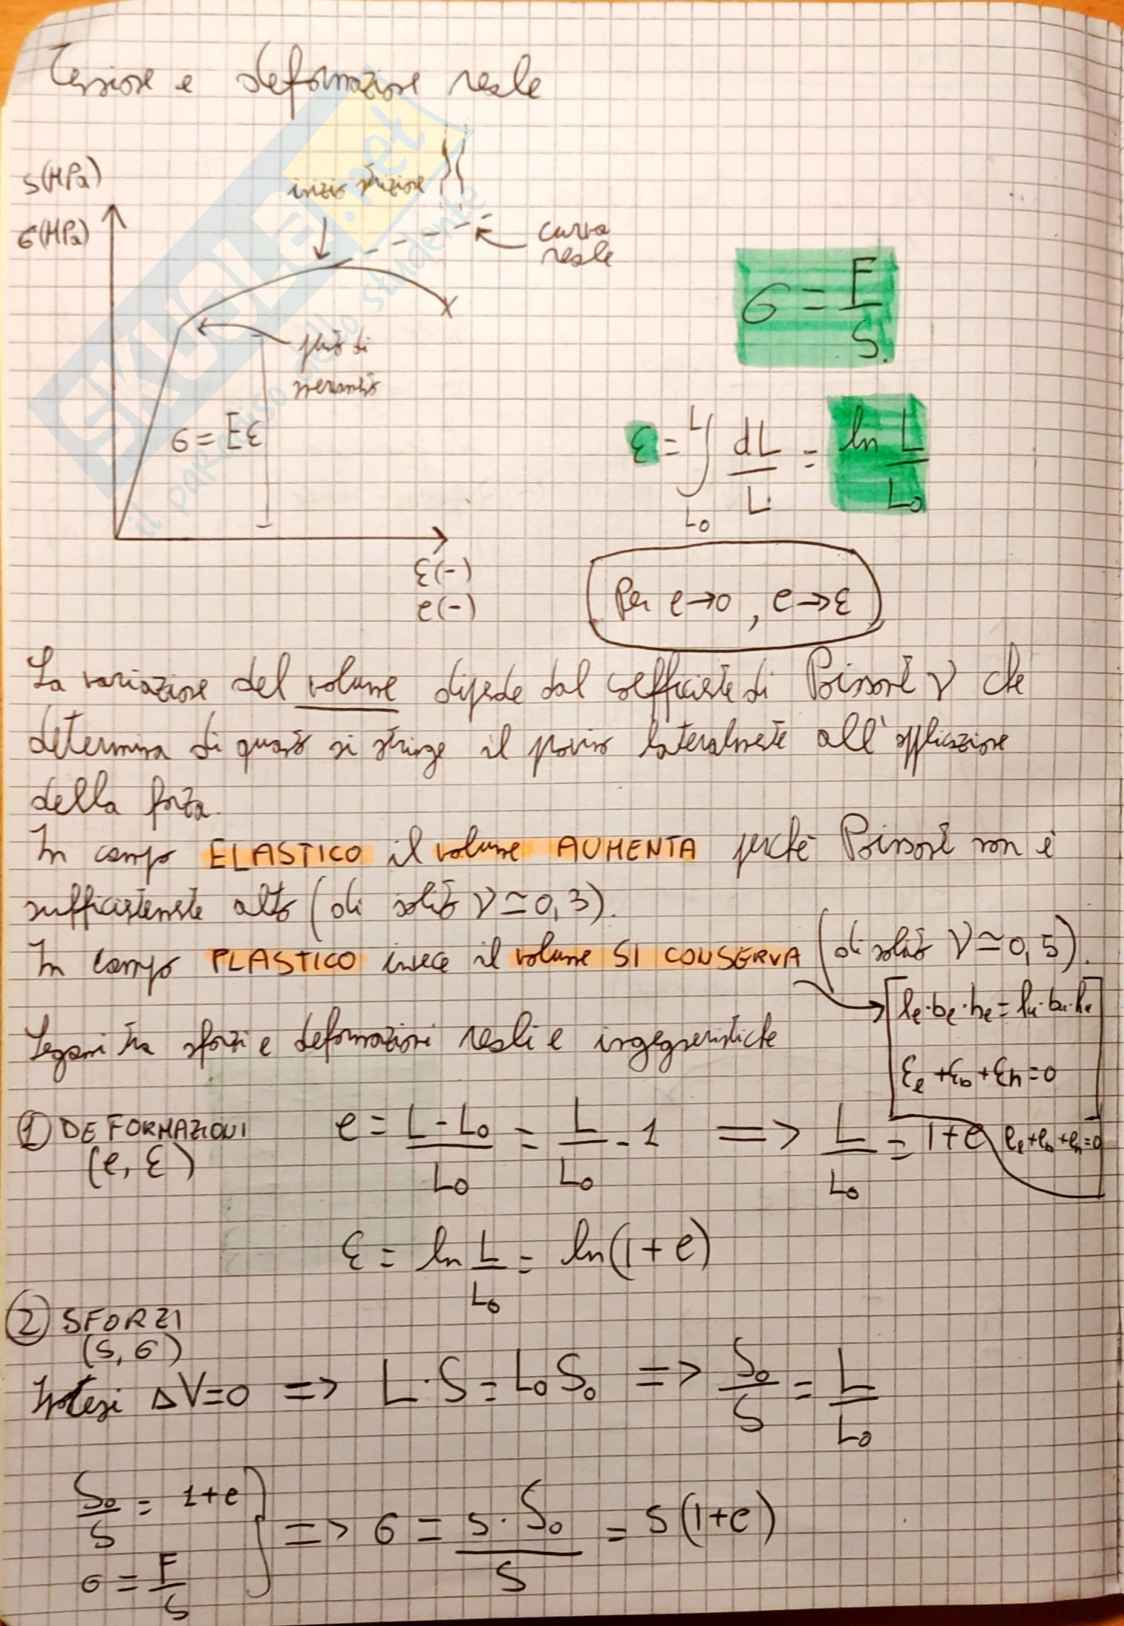 Tensione e deformazione reale
S(MPa)
σ(MPa)
inizio strizione
curva
reale
σ = F/S
punto di
snervamento
σ = Eε
ε = ∫_{L₀}^{L} dL/L = ln L/L₀
ε(-)
e(-)
Per e→0, e→ε
La variazione del volume dipende dal coefficiente di Poisson ν che
determina di quanto si stringe il provino lateralmente all'applicazione
della forza.
In campo ELASTICO il volume AUMENTA perché Poisson non è
sufficientemente alto (di solito ν≃0,3).
In campo PLASTICO invece il volume SI CONSERVA (di solito ν≃0,5).
Legami tra sforzi e deformazioni reali e ingegneristiche
εₑ + ε_b + εh = 0
① DEFORMAZIONI
(e, ε)
e = (L-L₀)/L₀ = L/L₀ - 1 => L/L₀ = 1+e
ε = ln L/L₀ = ln(1+e)
② SFORZI
(s, σ)
Ipotesi ΔV=0 => L·S = L₀S₀ => S₀/S = L/L₀
S₀/S = 1+e
σ = F/S
=> σ = s·S₀/S = s(1+e)
SKUOLA.net
il paradiso dello studente